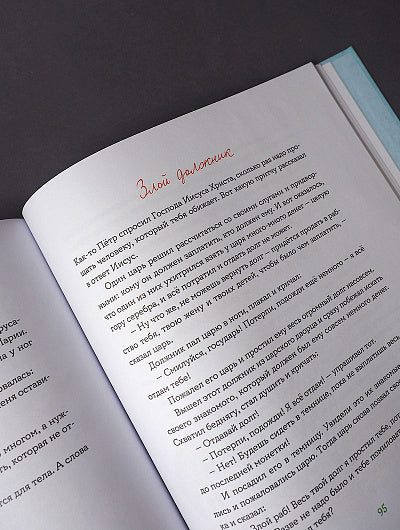 руса-
Марии.
а у ног
валась;
еня остави-
многом, а нуж-
ть, которая не от-
тся для тела. А слова
Злой должник
Как-то Пётр спросил Господа Иисуса Христа, сколько раз надо про-
щать человеку, который тебя обижает. Вот какую притчу рассказал
в ответ Иисус.
Один царь решил рассчитаться со своими слугами и придвор-
ными: кому он должен заплатить, кто должен ему. И вот оказалось,
что один из них ухитрился взять у царя много-много денег – целую
гору серебра, и всё потратил и отдать долг не может.
– Ну что же, не можешь вернуть долг – придётся продать в раб-
ство тебя, твою жену и твоих детей, чтобы было чем заплатить, –
сказал царь.
Должник пал царю в ноги, плакал и кричал:
– Смилуйся, государь! Потерпи, подожди ещё немного – я всё
отдам тебе!
Пожалел его царь и простил ему весь огромный долг насовсем.
Вышел этот должник из царского дворца и сразу побежал искать
своего знакомого, который должен был ему совсем немного денег.
Схватил беднягу, стал душить и кричать:
– Отдавай долг!
– Потерпи, подожди! Я всё отдам! – упрашивал тот.
– Нет! Будешь сидеть в темнице, пока не выплатишь весь
до последней монетки!
И посадил его в темницу. Увидели это их знакомые
ли и пожаловались царю. Тогда царь снова позвал
и сказал:
Злой раб! Весь твой долг я простил тебе,
не надо было и тебе
95